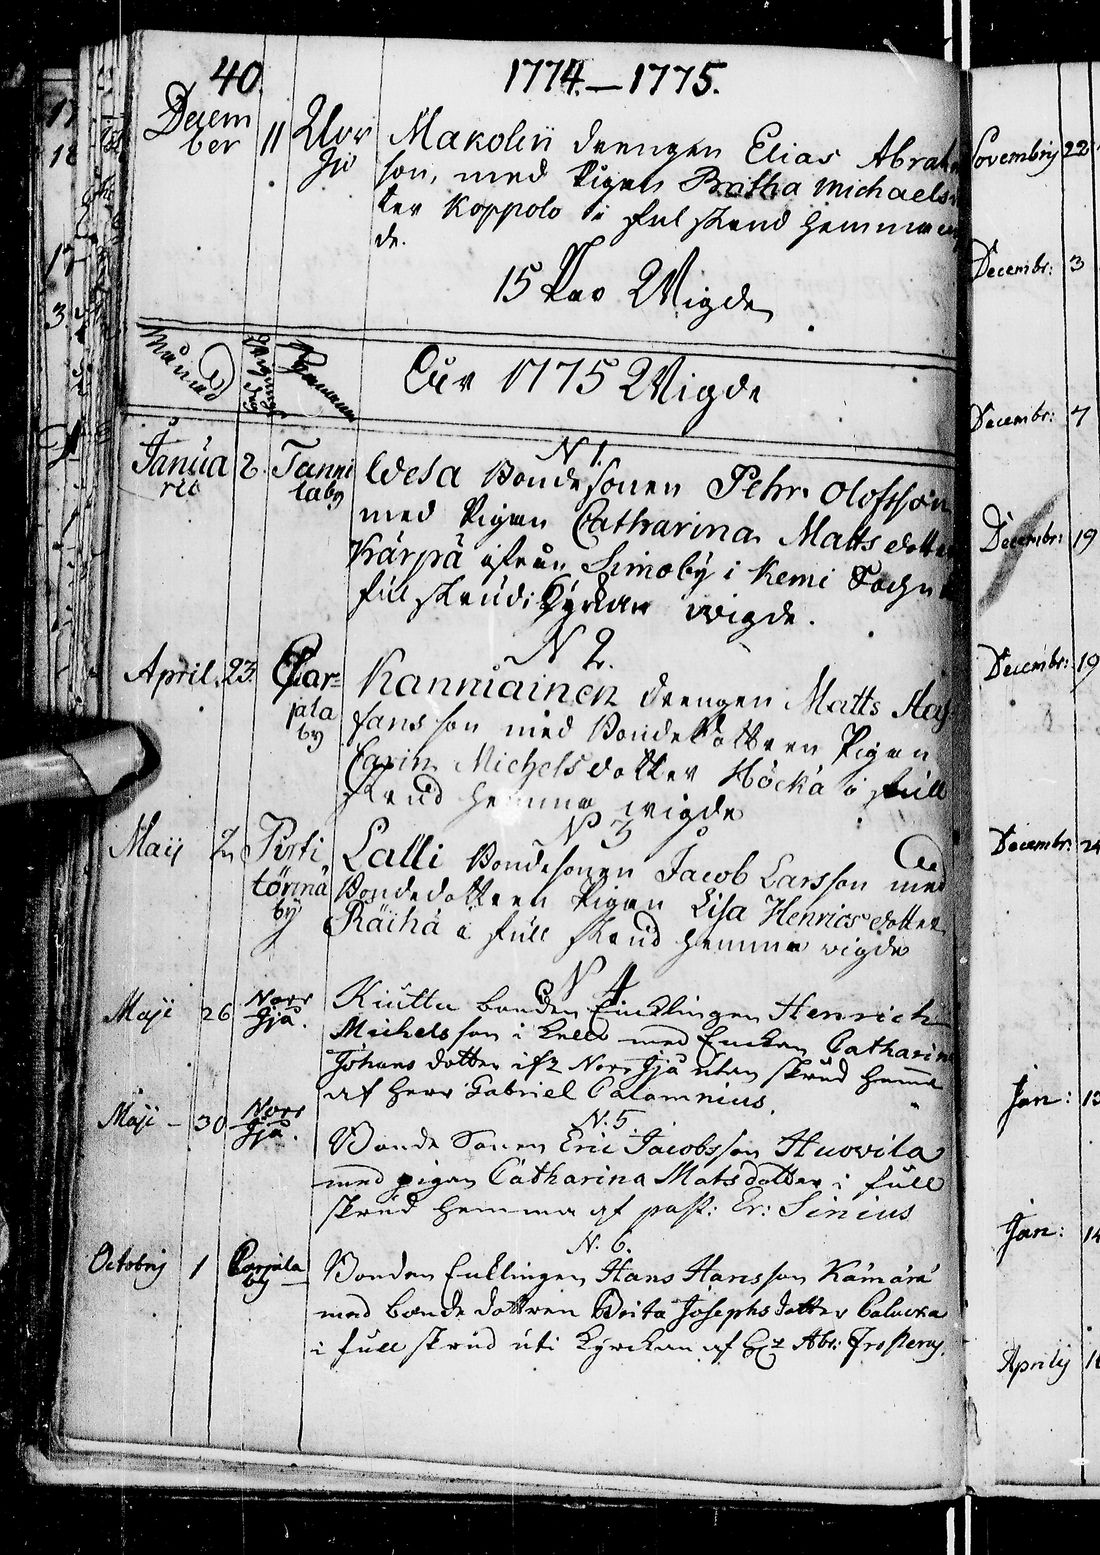 40. 1774.—1775.
Decem
ber 11 Makolin drengen Elias Abraha
son, med Pigan Britha Michaels
ter Koppolo i ful skrud hemma
de.
15 Par Wigde
Månad
År 1775 Wigde
N 1.
Janua 2. Wesa Bondesonen Pehr Olofsson
rii med Pigan Catharina Matts dotter
Kärpä ifrån Simoby i Kemi Sochn
full skrud i Kyrkan wigde.
N 2.
April. 23. Car=
jala
by
Kanniainen drengen Matts
fans son med Bondedottren Pigan
Carin Michels dotter Höckä i full
skrud hemma wigde
N 3
Maij Lalli Bondesonen Jacob Larsson med
törmä Bondedottren Pigan Lisa Henrics dotter
by Räihä i full skrud hemma wigde
N 4
Maji 26 Norr
Jjä.
Kiuttu bonden Enklingen Henrich
Michels son i med Enckan Catharin
Johans dotter ifr Norr Jjä utan skrud hemma
af Herr Gabriel Calamnius.
N. 5.
Maji — 30 Norr
Jjä.
Bonde Sonen Eric Jacobsson Huovila
med pigan Catharina Mats dotter i full
skrud hemma af past: Er: Sinius
N. 6.
Octobrij 1 Carjala
by
Bonden Enklingen Hans Hansson Kämärä
med bonde dottren Brita Josephs dotter
i full skrud uti Kyrckan af Abr: Frosterus.
Novembrij 22
Decembr: 3
Decembr: 7
Decembr: 19
Decembr: 19
Decembr: 24
Jan: 13
Jan: 14
Aprilij